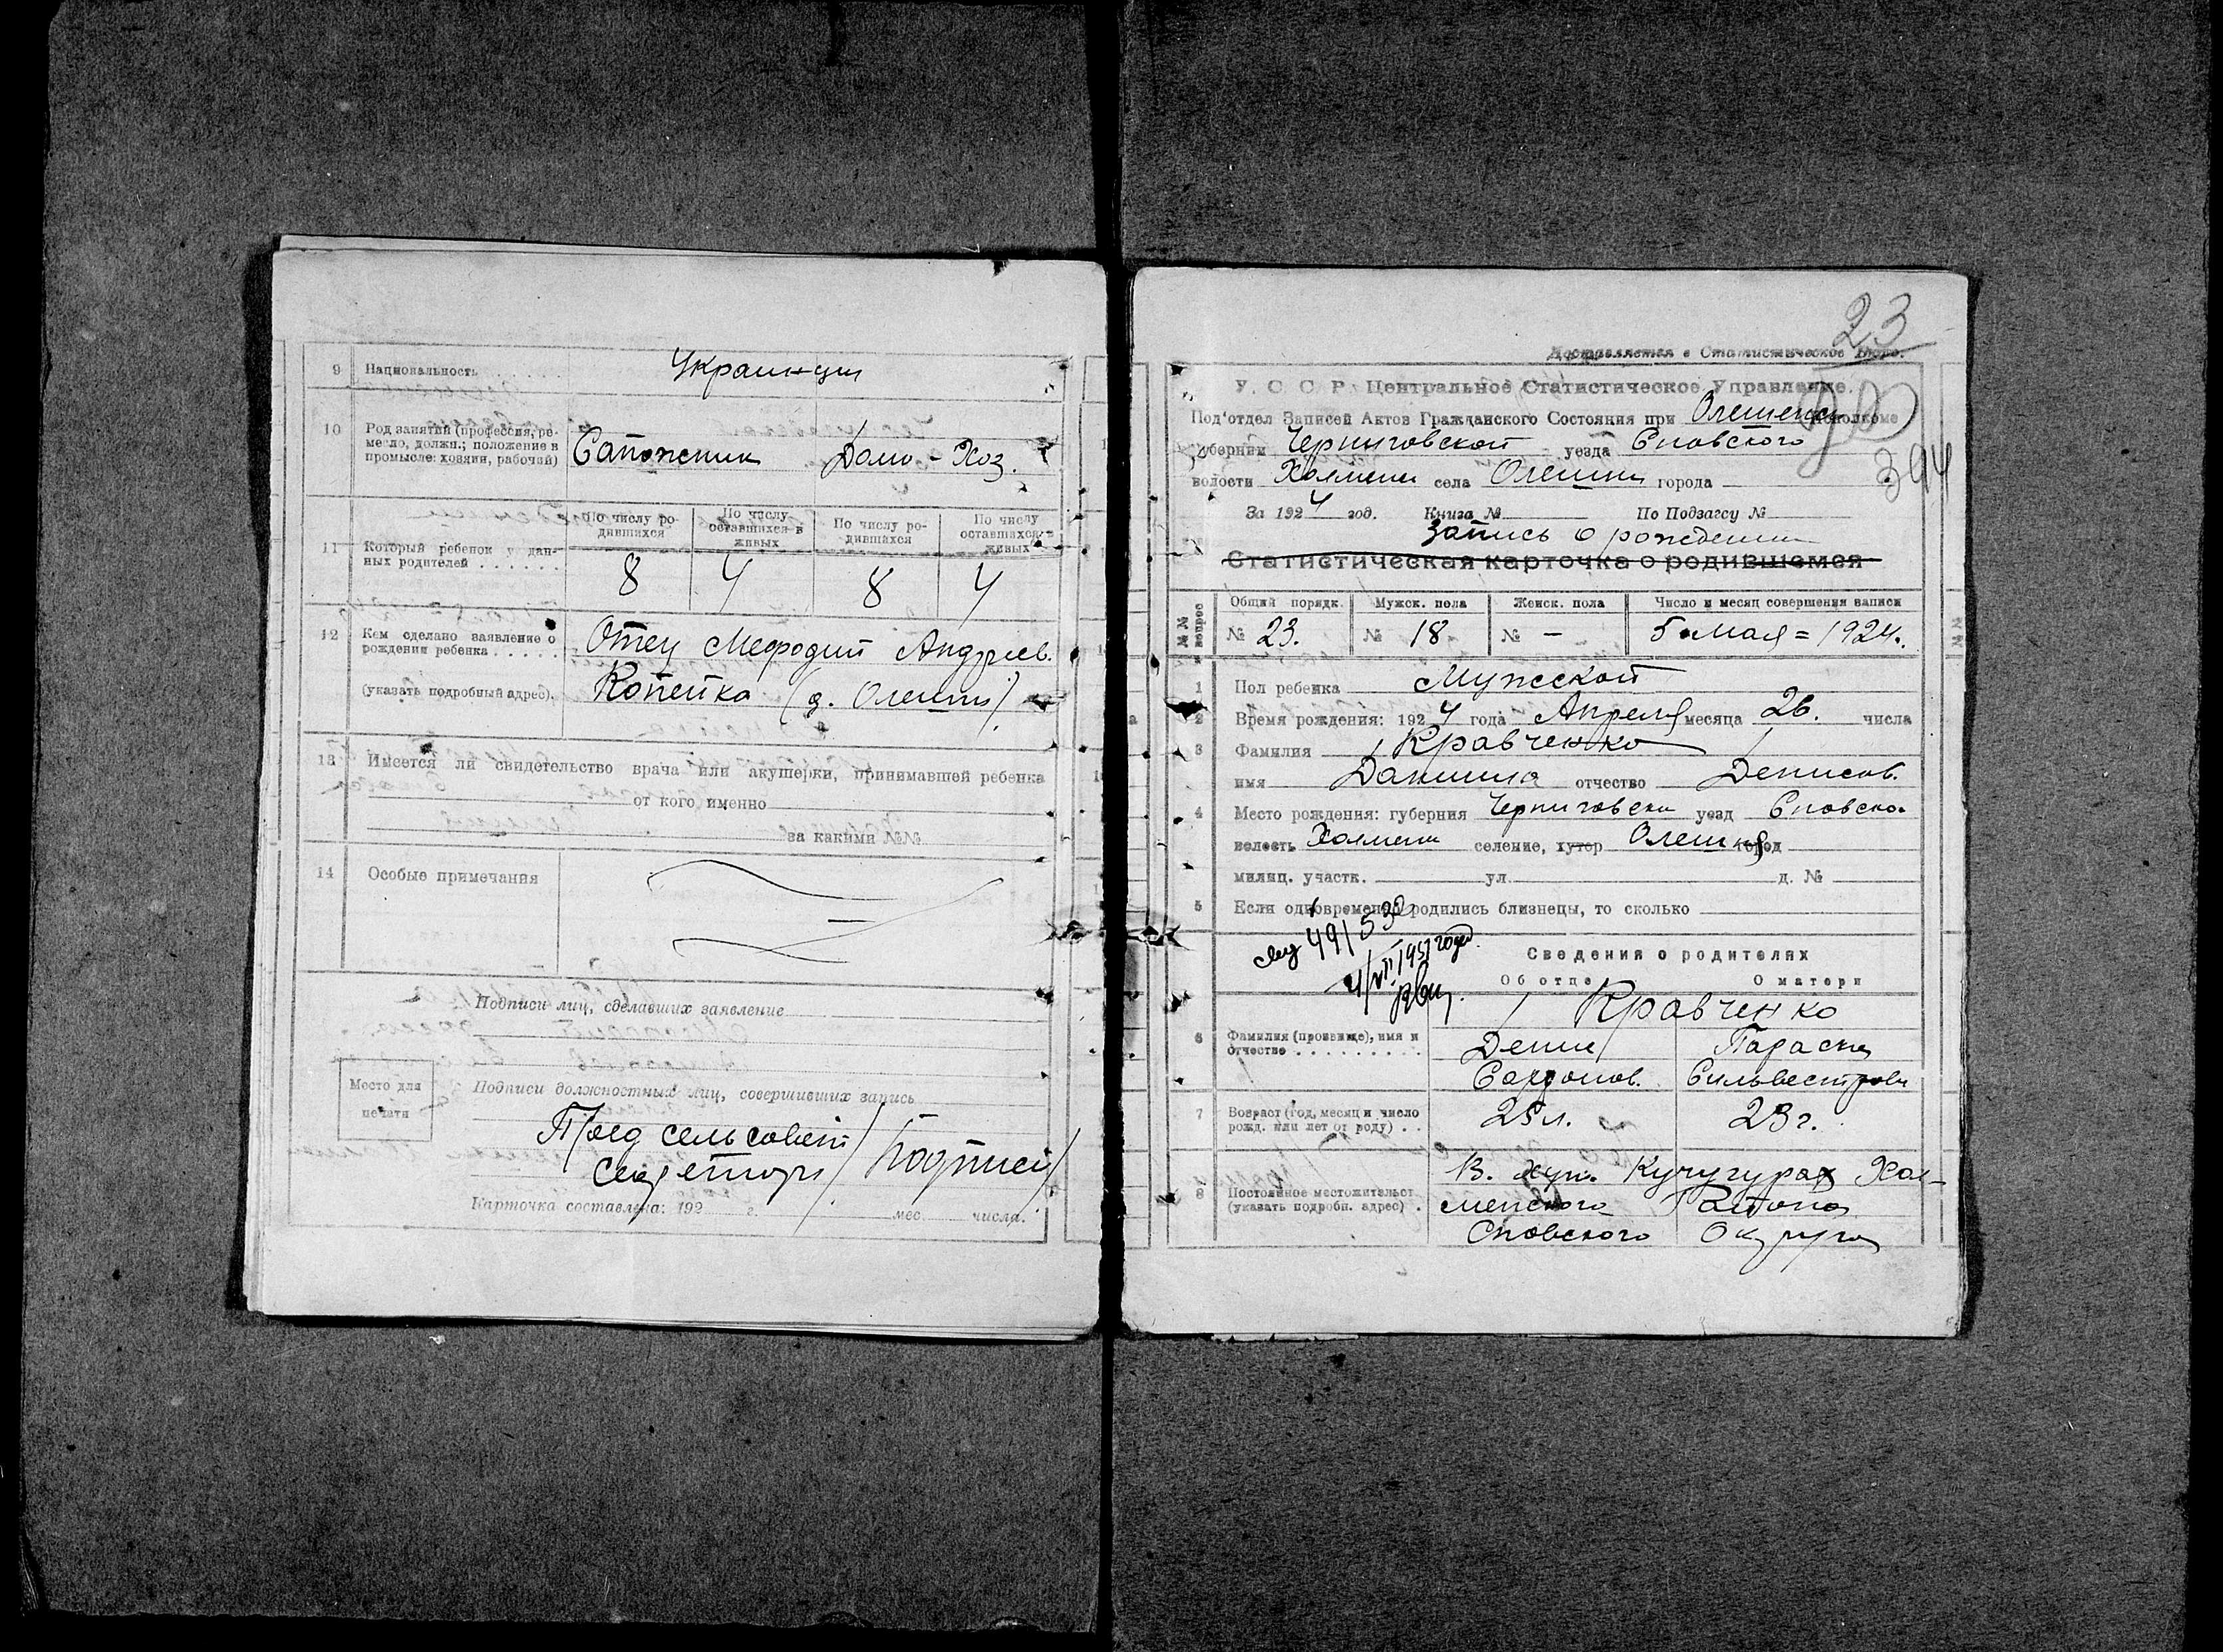 9 Национальность . . . . . Украинцы
10 Род занятий (профессия, ре-
месло, должн.; положение в
промысле: хозяин, рабочий) Сапожник Домо-Хоз.
11 Который ребенок у дан-
ных родителей . . . . . .
По числу ро-
дившихся
По числу
оставшихся в
живых
По числу ро-
дившихся
По числу
оставшихся в
живых
8 4 8 4
12 Кем сделано заявление о
рождении ребенка . . . . . Отец Мефодий Андреев.
(указать подробный адрес). Копейка (д. Олешня)
13 Имеется ли свидетельство врача или акушерки, принимавшей ребенка
от кого именно
за какими №№
14 Особые примечания
Подписи лиц, сделавших заявление
Место для
печати
Подписи должностных лиц, совершивших запись
Пред сельсовета
Секретарь / Подписи /
Карточка составлена: 192 г. мес. числа.
23
Доставляется в Статистическое Бюро.
У. С. С. Р. Центральное Статистическое Управление.
Под'отдел Записей Актов Гражданского Состояния при Олешенск Исполкоме
губернии Черниговской уезда Сновского
394
волости Холменск села Олешни города
За 1924 год. Книга № По Подзагсу №
Запись о рождении
Статистическая карточка о родившемся
№№ вопрос
Общий порядк. Мужск. пола Женск. пола Число и месяц совершения записи
№ 23. № 18 № — 5 мая = 1924.
1 Пол ребенка Мужской
2 Время рождения: 1924 года Апреля месяца 26. числа
3 Фамилия Кравченко
имя Данила отчество Денисов.
4 Место рождения: губерния Черниговск уезд Сновско
волость Холменск селение, хутор Олешня город
милиц. участк. ул. д. №
5 Если одновременно родились близнецы, то сколько
Сведения о родителях
Об отце О матери
6 Фамилия (прозвище), имя и
отчество . . . . . . . . .
Кравченко
Денис Параска
Сильвестров
7 Возраст (год, месяц и число
рожд. или лет от роду) . . 25 л. 23 г.
8 Постоянное местожительст.
(указать подробн. адрес) .
В. хут. Кучугурах Хол-
менского Района
Сновского Округа